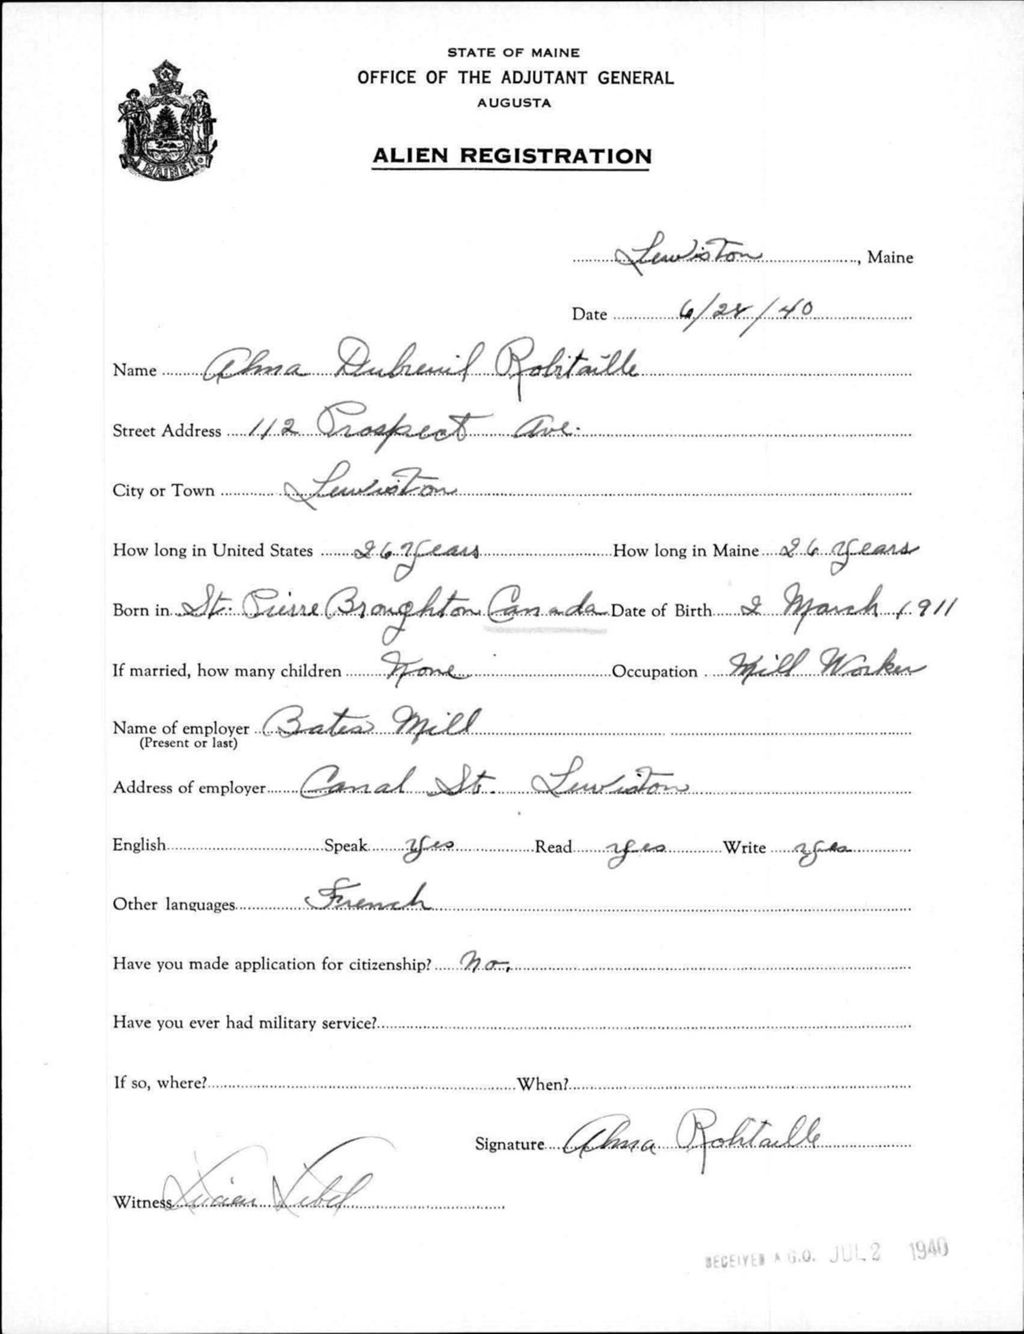 STATE OF MAINE
OFFICE OF THE ADJUTANT GENERAL
AUGUSTA
ALIEN REGISTRATION
MAINE
Lewiston, Maine
Date 6/28/40
Name Alma Dubreuil Robitaille
Street Address 112 Prospect Ave.
City or Town Lewiston
How long in United States 26 Years How long in Maine 26 years
Born in St. Pierre Broughton Canada Date of Birth 2 March, 1911
If married, how many children None Occupation Mill Worker
Name of employer Bates Mill
(Present or last)
Address of employer Canal St. Lewiston
English Speak Yes Read yes Write yes
Other languages French
Have you made application for citizenship? No.
Have you ever had military service?
If so, where? When?
Signature Alma Robitaille
Witness Lucien Lebel
RECEIVED A.G.O. JUL 2 1940